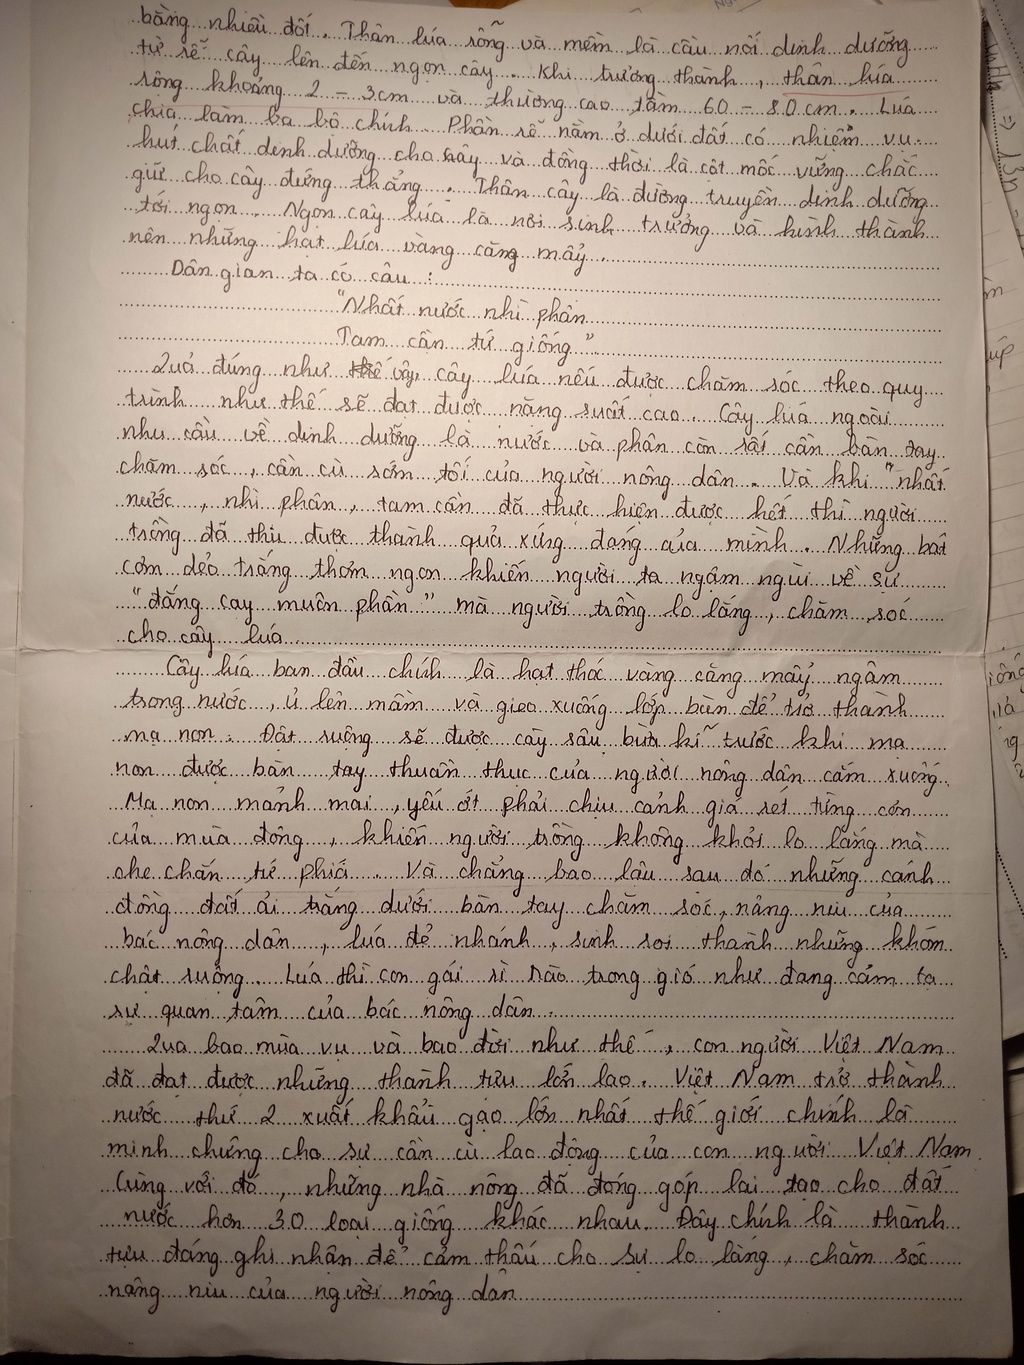 bằng nhiều đốt. Thân lúa rỗng và mềm là cầu nối dinh dưỡng
từ rễ cây lên đến ngọn cây. Khi trưởng thành, thân lúa
rộng khoảng 2 - 3cm và thường cao tầm 60 - 80cm. Lúa
chia làm ba bộ chính. Phần rễ nằm ở dưới đất có nhiệm vụ
hút chất dinh dưỡng cho cây và đồng thời là cột mốc vững chắc
giữ cho cây đứng thẳng. Thân cây là đường truyền dinh dưỡng
tới ngọn. Ngọn cây lúa là nơi sinh trưởng và hình thành
nên những hạt lúa vàng căng mẩy.
Dân gian ta có câu:
"Nhất nước nhì phân
Tam cần tứ giống"
Quả đúng như thế vậy, cây lúa nếu được chăm sóc theo quy
trình như thế sẽ đạt được năng suất cao. Cây lúa ngoài
nhu cầu về dinh dưỡng là nước và phân còn rất cần bàn tay
chăm sóc, cần cù sớm tối của người nông dân. Và khi "nhất
nước, nhì phân, tam cần đã thực hiện được hết thì người
trồng đã thu được thành quả xứng đáng của mình. Những bát
cơm dẻo trắng thơm ngon khiến người ta ngậm ngùi về sự
"đắng cay muôn phần" mà người trồng lo lắng, chăm sóc
cho cây lúa
Cây lúa ban đầu chính là hạt thóc vàng căng mẩy ngâm
trong nước, ủ lên mầm và gieo xuống lớp bùn để trở thành
mạ non. Đất ruộng sẽ được cày sâu bừa kĩ trước khi mạ
non được bàn tay thuần thục của người nông dân cắm xuống.
Mạ non mảnh mai, yếu ớt phải chịu cảnh giá rét từng cơn
của mùa đông, khiến người trồng không khỏi lo lắng mà
che chắn tứ phía. Và chẳng bao lâu sau đó những cánh
đồng đất ải trắng dưới bàn tay chăm sóc, nâng niu của
bác nông dân, lúa đẻ nhánh, sinh sôi thành những khóm
chật ruộng. Lúa thì con gái rì rào trong gió như đang cảm tạ
sự quan tâm của bác nông dân.
Qua bao mùa vụ và bao đời như thế, con người Việt Nam
đã đạt được những thành tựu lớn lao. Việt Nam trở thành
nước thứ 2 xuất khẩu gạo lớn nhất thế giới chính là
minh chứng cho sự cần cù lao động của con người Việt Nam.
Cùng với đó, những nhà nông đã đóng góp lai tạo cho đất
nước hơn 30 loại giống khác nhau. Đây chính là thành
tựu đáng ghi nhận để cảm thấu cho sự lo lắng, chăm sóc
nâng niu của người nông dân